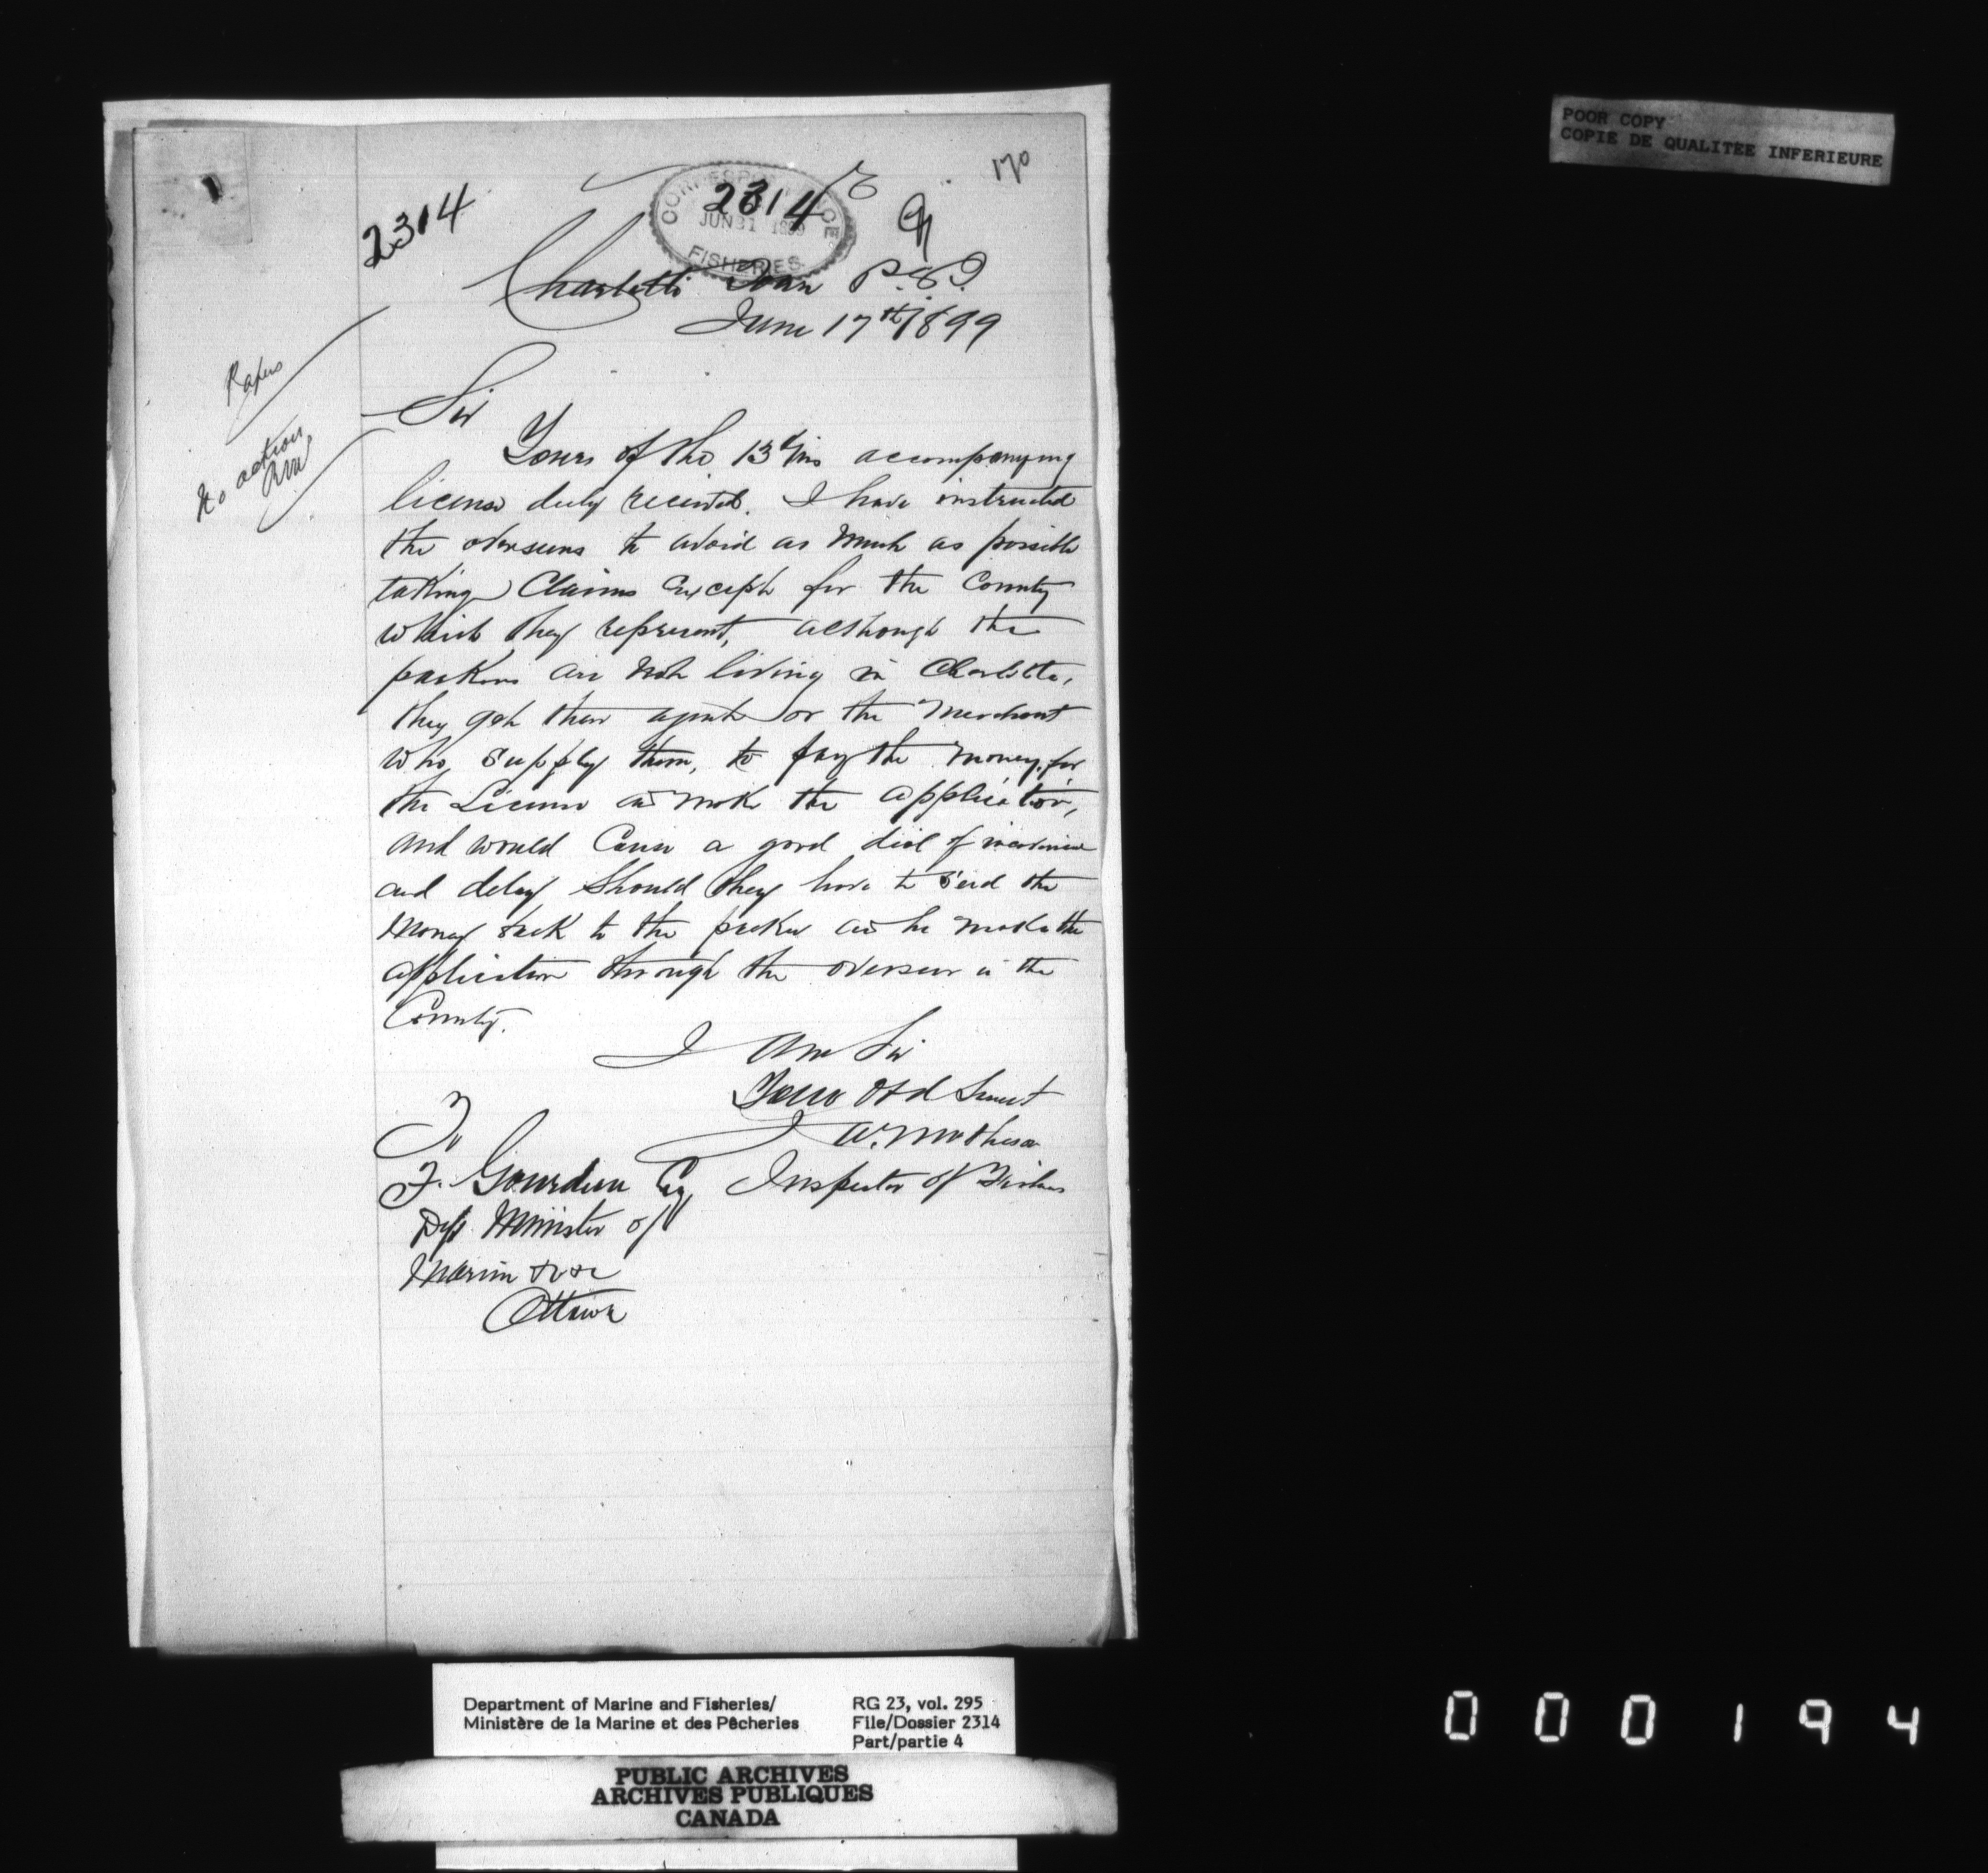 POOR COPY
COPIE DE QUALITEE INFERIEURE
170
2314
2314
CORRESPONDENCE
JUN 21 1899
FISHERIES
Charlotte Town P.E.I.
June 17th 1899
Papers
No action
Sir
Yours of the 13th ins accompanying
license duly received. I have instructed
the overseers to avoid as much as possible
taking Claims Except for the County
which they represent, although the
packers are not living in Charlotte,
they get their agent or the Merchant
who supply them, to pay the money for
the License and make the application,
and would Cause a good deal of
and delay should they have to send the
Money back to the packer and he make the
application through the overseer in the
County.
I Am Sir
Your Obd Servt
J A. Matheson
Inspector of Fisheries
To
F. Gourdeau Esq
Dept Minister of
Marine &c &c
Ottawa
Department of Marine and Fisheries/
Ministère de la Marine et des Pêcheries
RG 23, vol. 295
File/Dossier 2314
Part/partie 4
PUBLIC ARCHIVES
ARCHIVES PUBLIQUES
CANADA
000194